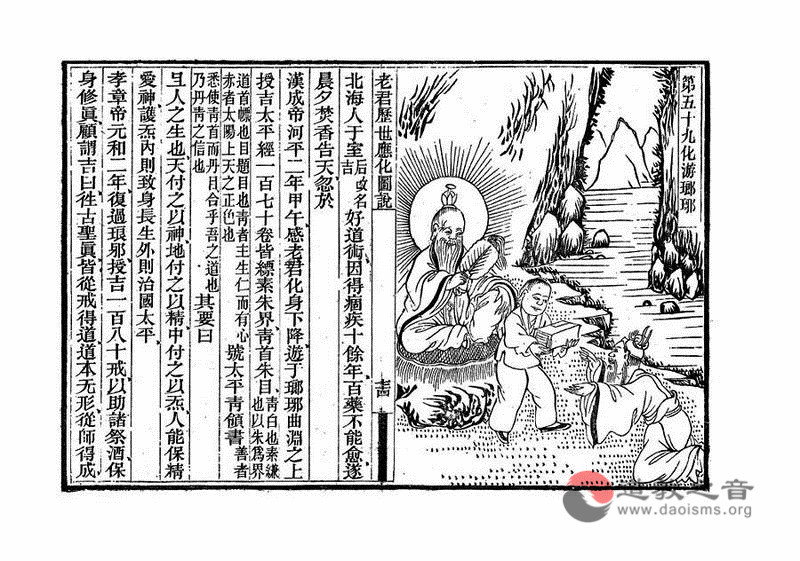 第五十九化游瑯琊
老君歷世應化圖說
北海人于室後改名吉好道術因得痼疾十餘年百藥不能愈遂
晨夕焚香告天忽於
漢成帝河平二年甲午感老君化身下降遊于瑯琊曲淵之上
授吉太平經一百七十卷皆縹素朱界靑首朱目靑白也素縑也以朱爲界
道首幖也目題目也靑者主生仁而有心赤者太陽上天之正色也號太平靑領書善者
悉使靑首而丹目合乎吾之道也乃丹靑之信也其要曰
且人之生也天付之以神地付之以精中付之以炁人能保精
愛神護炁內則致身長生外則治國太平
孝章帝元和二年復過琅邪授吉一百八十戒以助諸祭酒保
身修眞顧謂吉曰徃古聖眞皆從戒得道道本无形從師得成
道教之音
www.daoisms.org